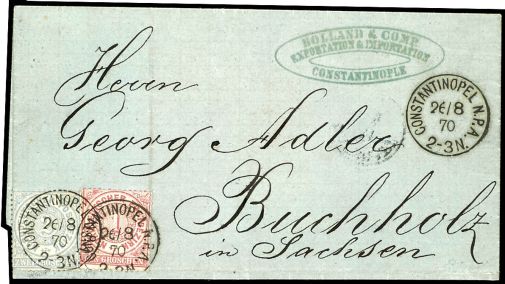 HOLLAND & COMP.
EXPORTATION & IMPORTATION
CONSTANTINOPLE
CONSTANTINOPEL N.P.A.
26/8
70
2-3N.
Herrn
Georg Adler
Buchholz
in Sachsen
CONSTANTINOPEL
26/8
70
2-3N.
CONSTANTINOPEL N.P.A.
26/8
70
2-3N.
GROSCHEN